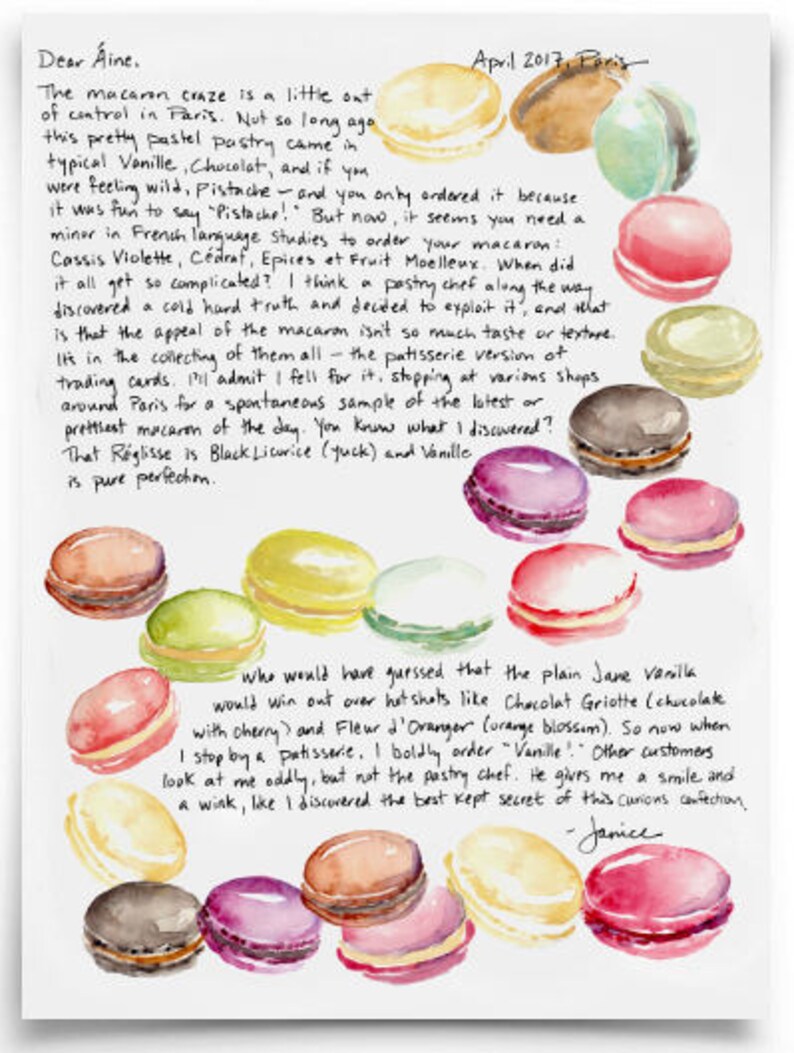 Dear Áine,
April 2017, Paris
The macaron craze is a little out
of control in Paris. Not so long ago
this pretty pastel pastry came in
typical Vanille, Chocolat, and if you
were feeling wild, Pistache – and you only ordered it because
it was fun to say "Pistache!" But now, it seems you need a
minor in French language studies to order your macaron:
Cassis Violette, Cédrat, Epices et Fruit Moelleux. When did
it all get so complicated? I think a pastry chef along the way
discovered a cold hard truth and decided to exploit it, and that
is that the appeal of the macaron isn't so much taste or texture.
It's in the collecting of them all – the patisserie version of
trading cards. I'll admit I fell for it, stopping at various shops
around Paris for a spontaneous sample of the latest or
prettiest macaron of the day. You know what I discovered?
That Réglisse is Black Licorice (yuck) and Vanille
is pure perfection.
Who would have guessed that the plain Jane Vanilla
would win out over hotshots like Chocolat Griotte (chocolate
with cherry) and Fleur d'Oranger (orange blossom). So now when
I stop by a patisserie, I boldly order "Vanille!" Other customers
look at me oddly, but not the pastry chef. He gives me a smile and
a wink, like I discovered the best kept secret of this curious confection.
- Janice